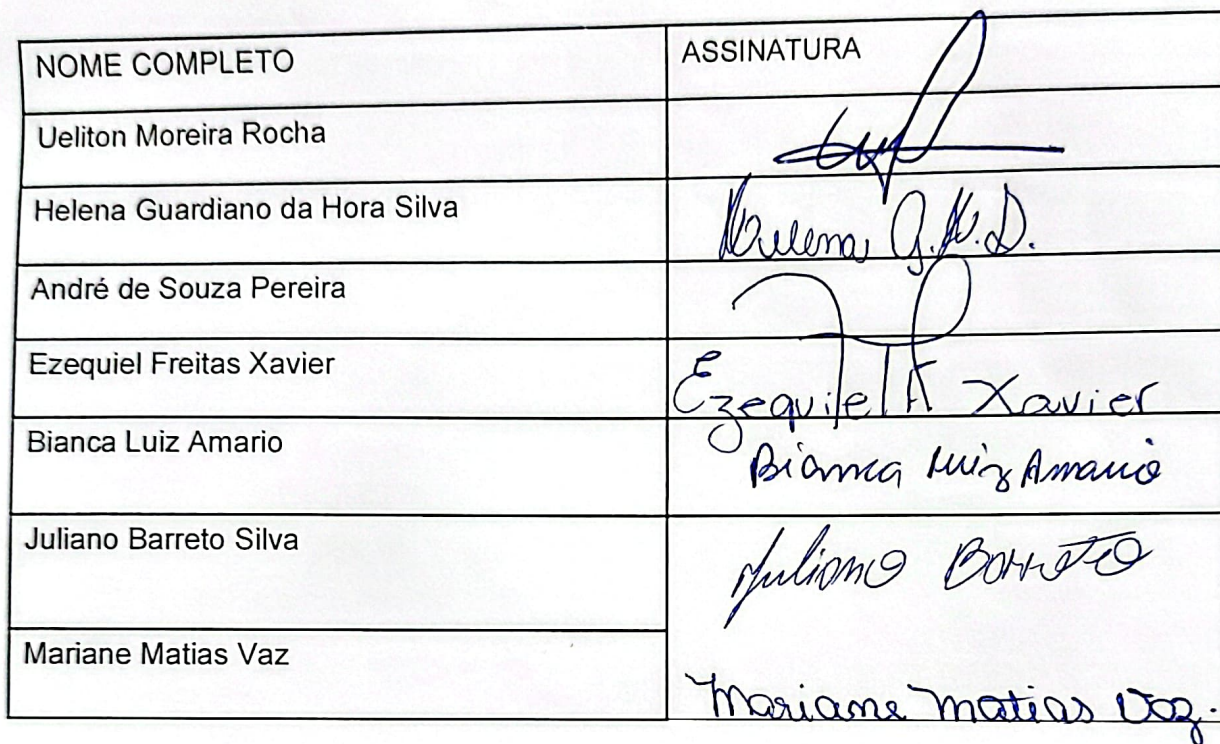 NOME COMPLETO ASSINATURA
Ueliton Moreira Rocha
Helena Guardiano da Hora Silva G.H.S.
André de Souza Pereira
Ezequiel Freitas Xavier Ezequiel F Xavier
Bianca Luiz Amario Bianca Luiz Amario
Juliano Barreto Silva Juliano Barreto
Mariane Matias Vaz Mariane Matias Vaz.